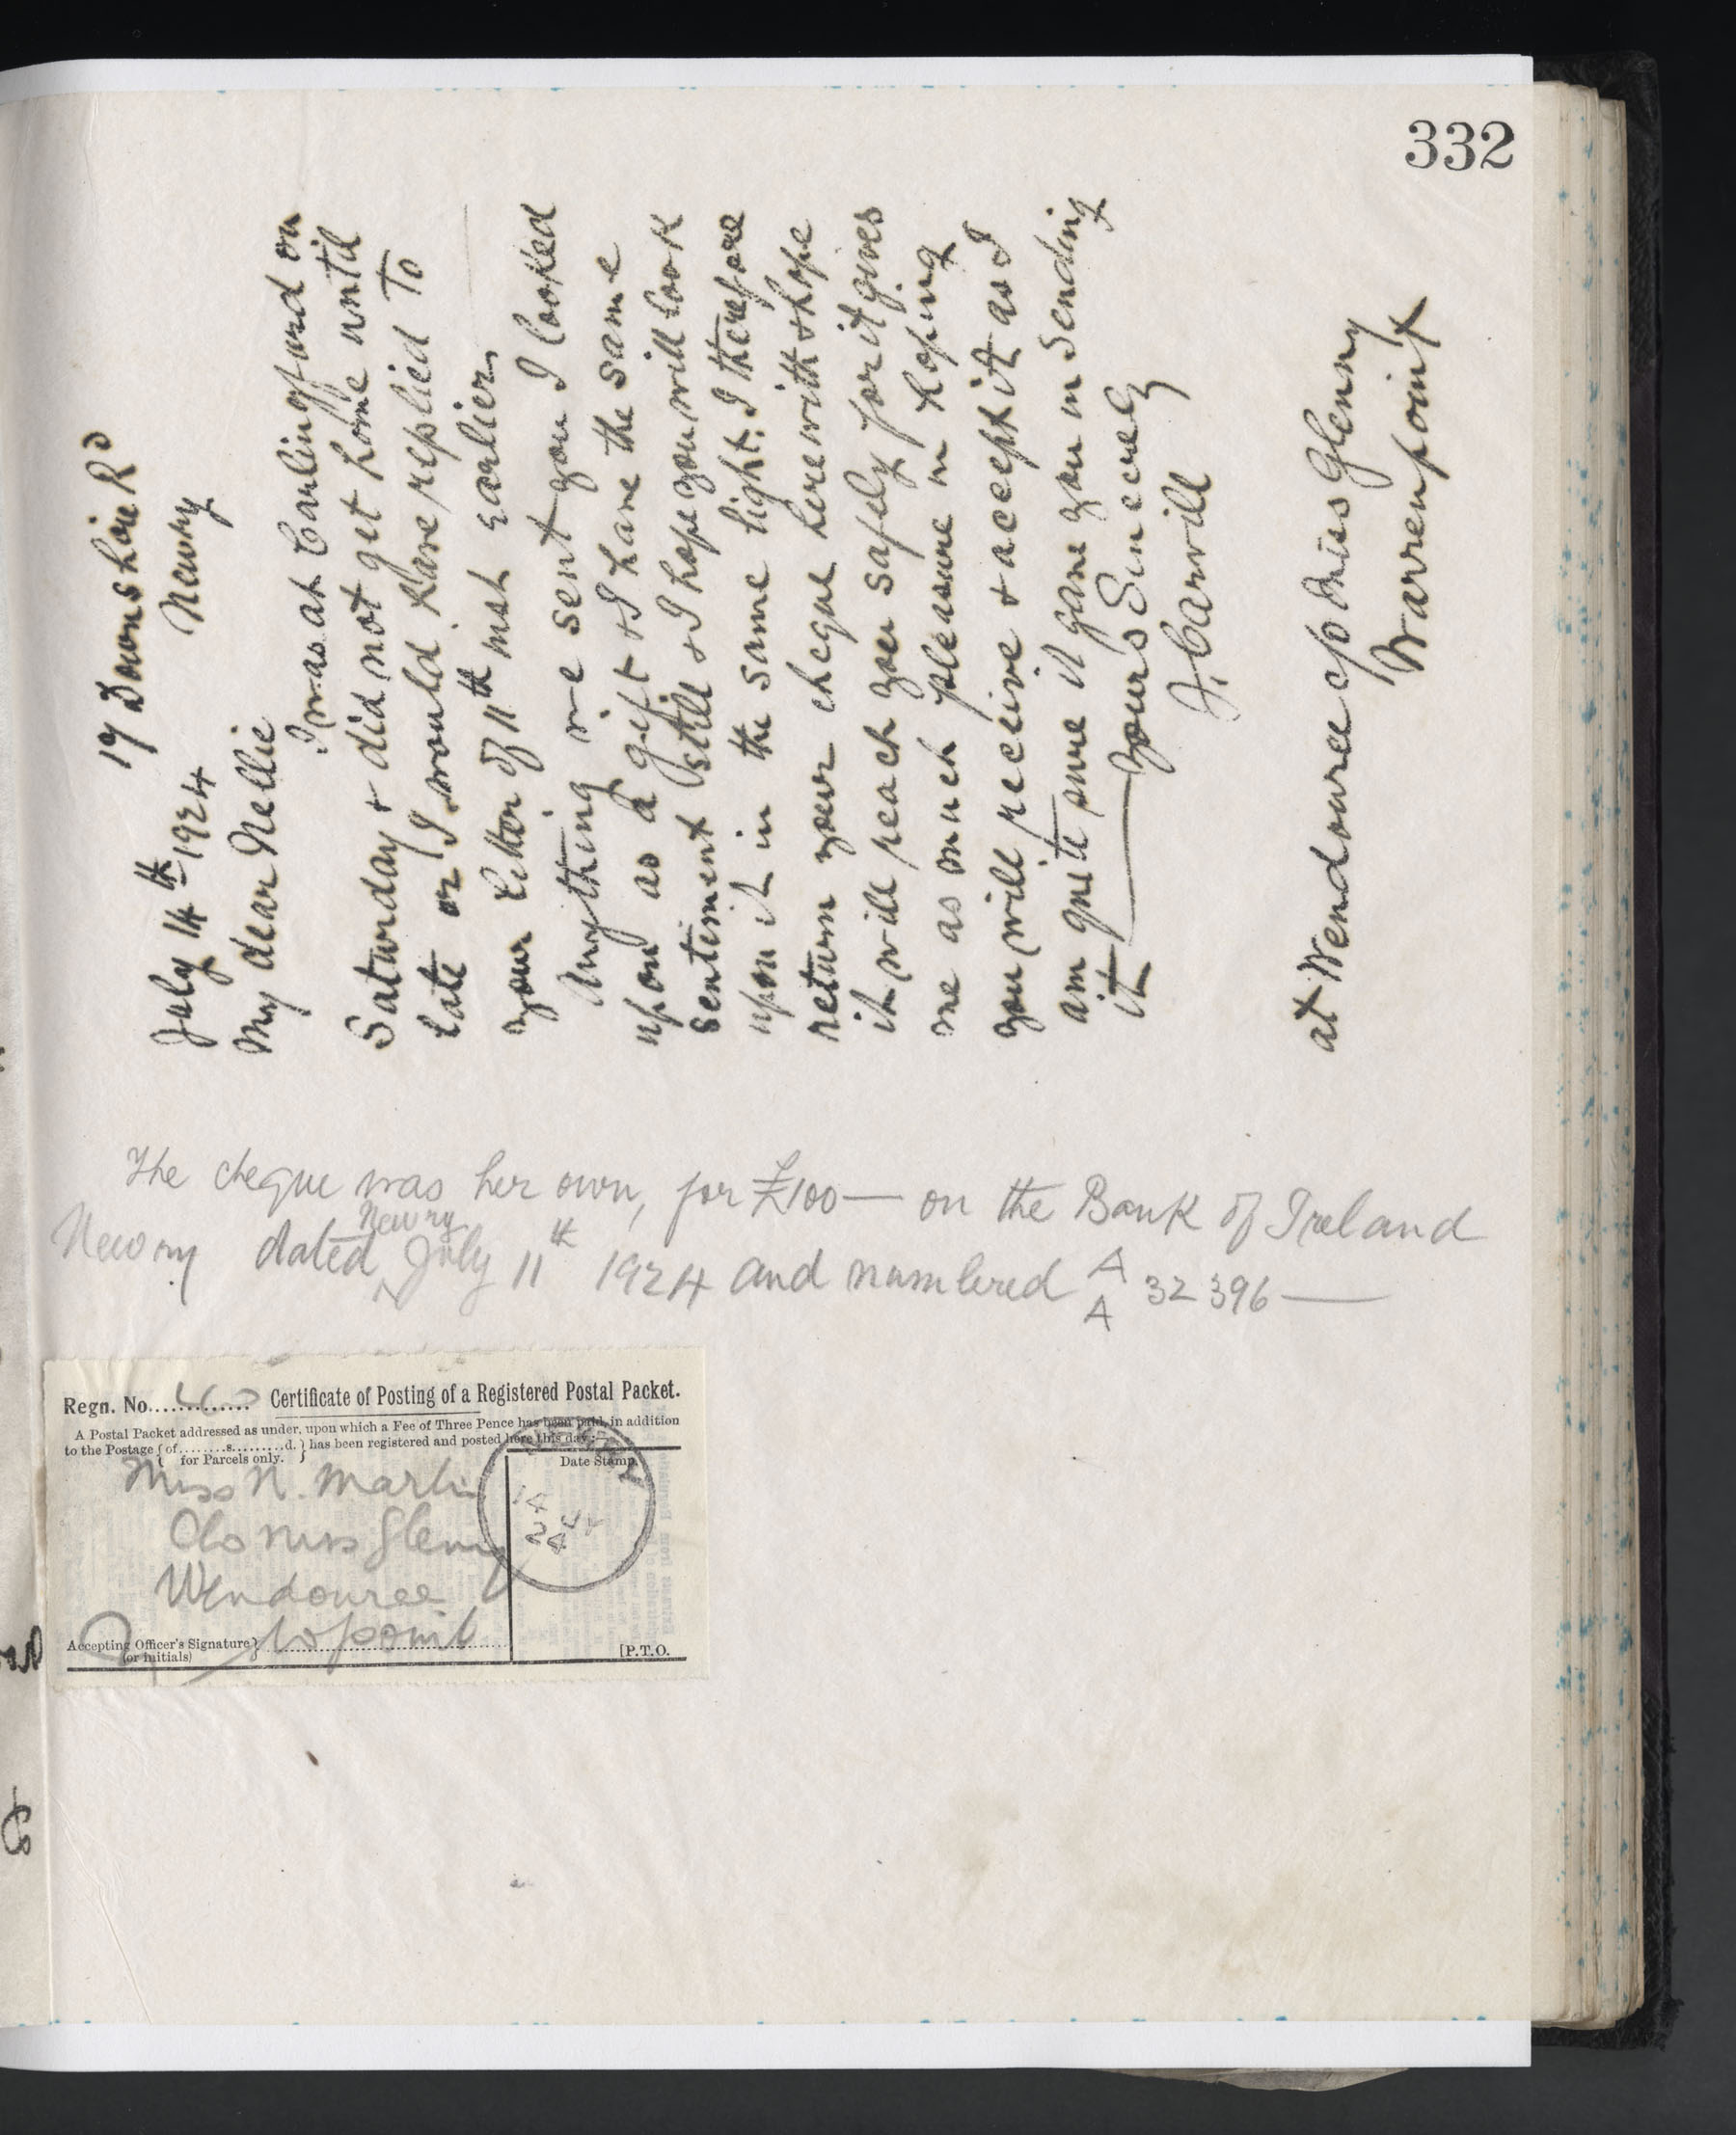 332
17 Downshire Rd
Newry
July 14th 1924
My dear Nellie
I was at Carlingford on
Saturday & did not get home until
late or I would have replied to
your letter of 11th inst earlier
Anything we sent you I looked
upon as a gift & I have the same
sentiment still & I hope you will look
upon it in the same light. I therefore
return your cheque herewith & hope
it will reach you safely for it gives
me as much pleasure in hoping
you will receive & accept it as I
am quite sure it gave you in sending
it — yours Sincerely
J. Carvill
at Wendouree c/o Miss Glenny
Warrenpoint
The cheque was her own, for £100 — on the Bank of Ireland
Newry dated Newry July 11th 1924 and numbered A/A 32396 —
Regn. No. Certificate of Posting of a Registered Postal Packet.
A Postal Packet addressed as under, upon which a Fee of Three Pence has been paid, in addition
to the Postage { of ........s.........d. } has been registered and posted here this day:—
for Parcels only.
Date Stamp.
Miss N. Martin
C/o Miss Glenny
Wendouree
W'point
Accepting Officer's Signature }
(or initials)
[P.T.O.
NEWRY
14 JY
24